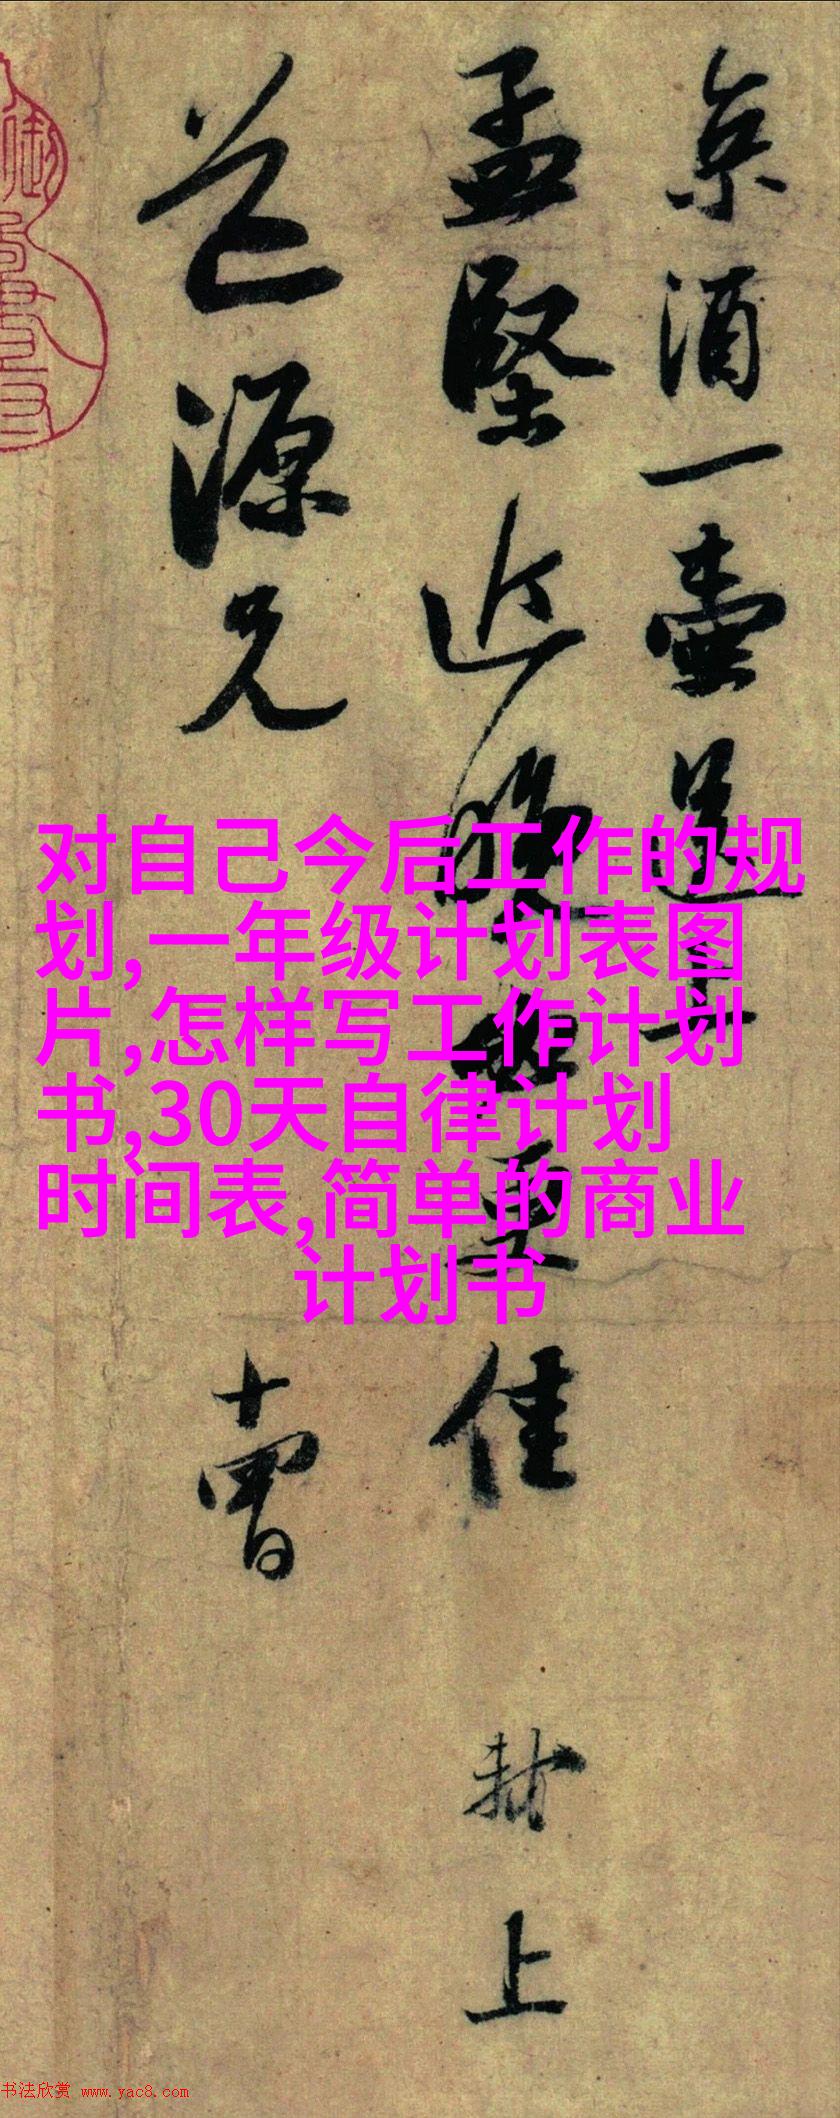 京酒一壶送上
孟坚近晚必要佳
芑源兄
十曾
封
上
对自己今后工作的规
划,一年级计划表图
片,怎样写工作计划
书,30天自律计划
时间表,简单的商业
计划书
书法欣赏 www.yac8.com